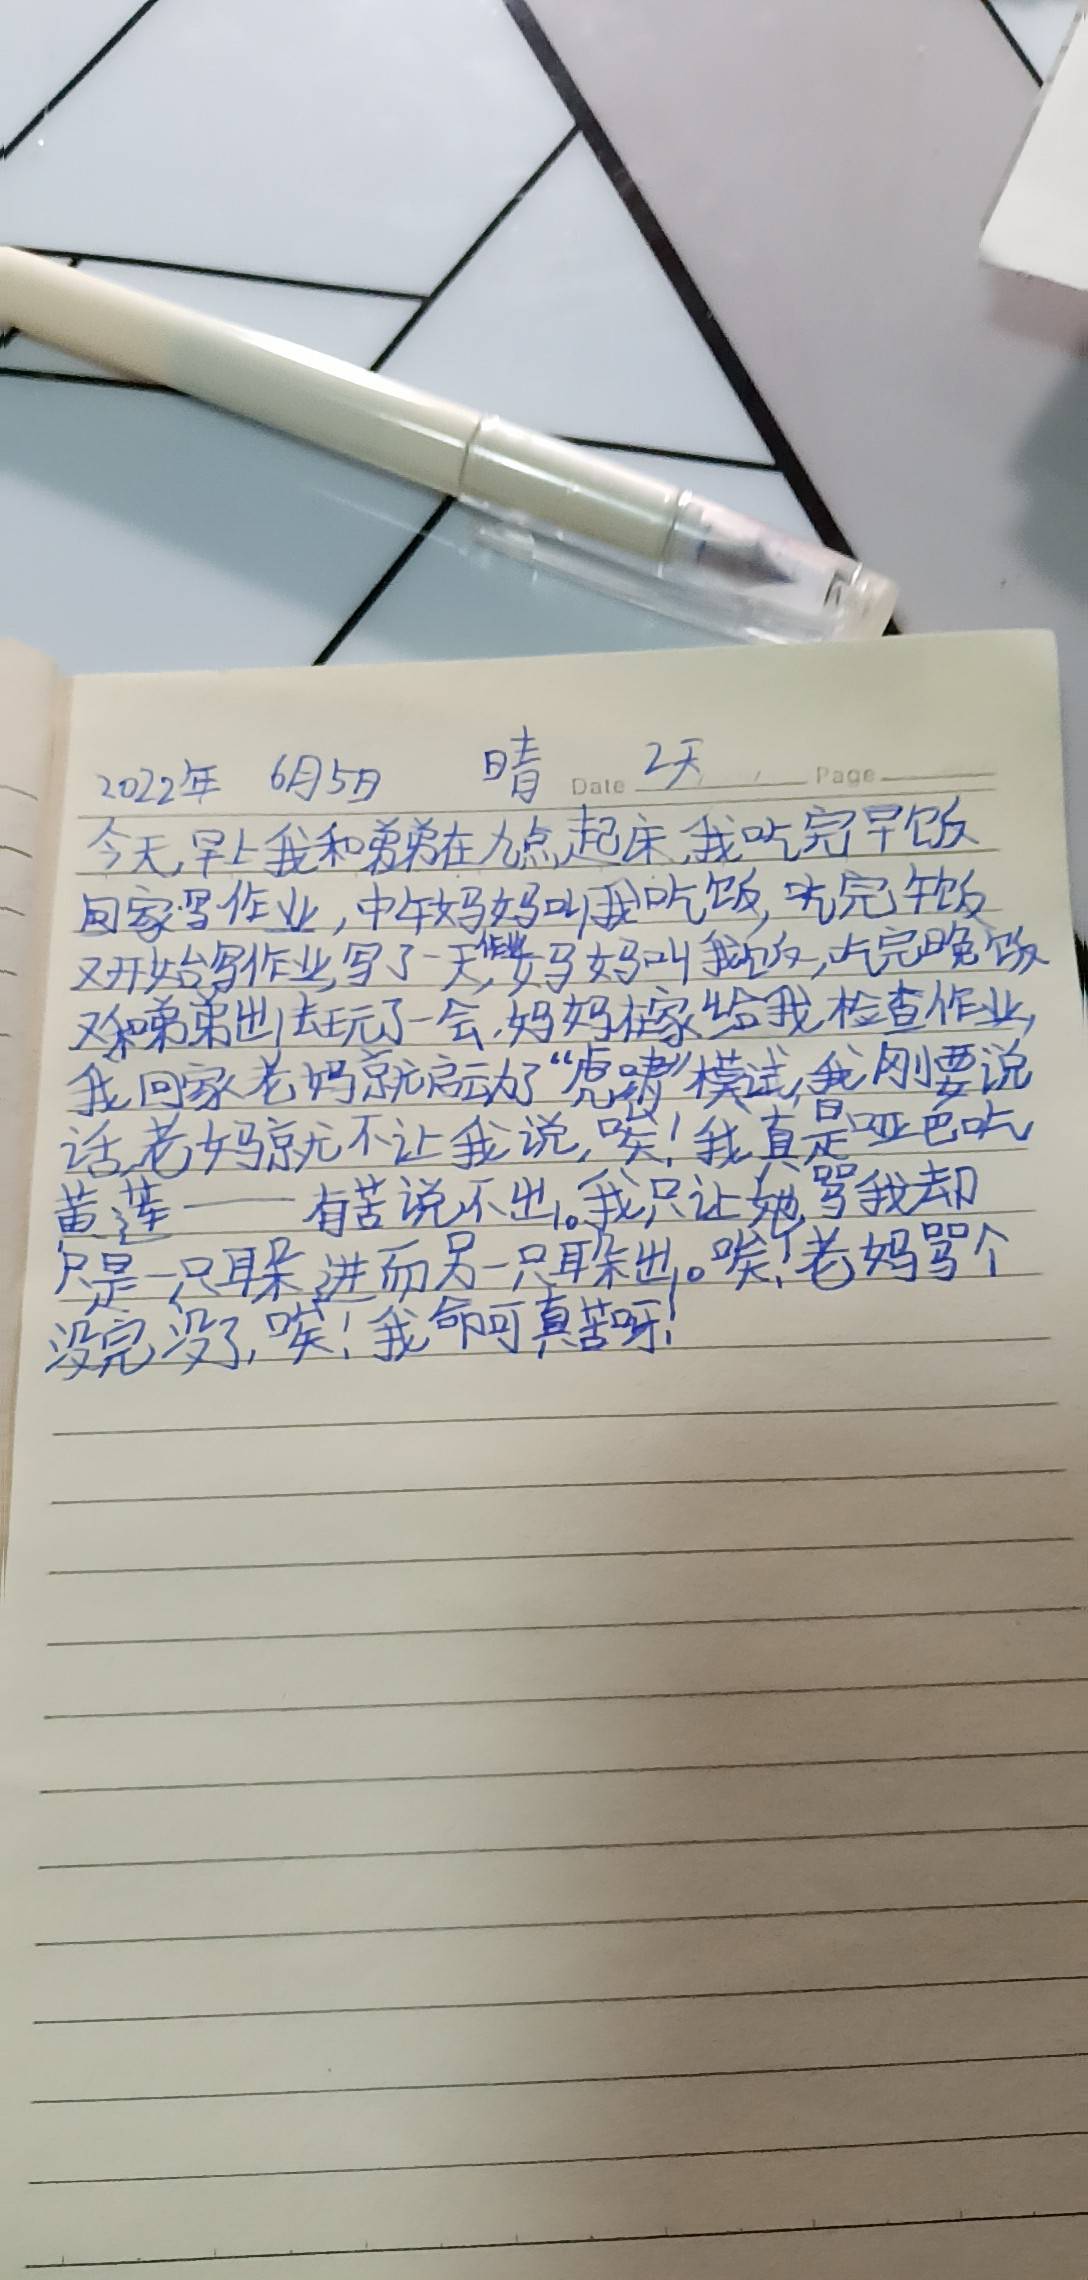 2022年 6月5日 晴 Date 2天 Page
今天,早上我和弟弟在九点,起床,我吃完早饭
回家写作业,中午妈妈叫我吃饭,吃完午饭
又开始写作业,写了一天作业,妈妈叫我吃饭,吃完晚饭
又和弟弟出去玩了一会,妈妈在家给我检查作业,
我回家老妈就启动了“虎啸”模试,我刚要说
话,老妈就不让我说,唉!我真是哑巴吃
黄莲——有苦说不出。我只让她骂我却
只是一只耳朵进而另一只耳朵出。唉!老妈骂个
没完没了,唉!我命可真苦呀!